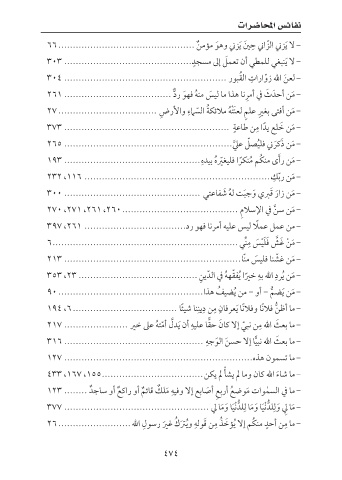 نفائس المحاضرات
– لا يَزني الزَّاني حِينَ يَزني وهوَ مؤمنٌ ٦٦
– لا يَنبغي للمطي أن تعملَ إلى مسجدٍ ٣٠٣
– لعنَ الله زوّاراتِ القُبور ٣٠٤
– مَن أحدَثَ في أمرِنا هذا ما ليسَ منهُ فهوَ ردٌّ ٢٦١
– مَن أفتى بغيرِ علمٍ لعنَتْهُ ملائكةُ السَّماءِ والأرضِ ٢٧
– مَن خلع يدًا مِن طاعةٍ ٣٧٣
– مَن ذَكرَني فليُصلِّ عليَّ ٢٦٥
– مَن رأى منكُم مُنكرًا فليغيّرهُ بيدِهِ ١٩٣
– مَن ربّكِ ١١٦، ٢٣٢
– مَن زارَ قَبري وَجبَت لهُ شَفاعتي ٣٠٠
– مَن سنَّ في الإسلامِ ٢٦٠، ٢٦١، ٢٧١، ٢٧٠
– من عمل عملًا ليس عليه أمرنا فهو رد ٢٦١، ٣٩٧
– مَنْ غَشَّ فَلَيْسَ مِنِّي ٦
– مَن غشّنا فليسَ منّا ٢١٣
– مَن يُردِ الله بهِ خيرًا يُفَقّههُ في الدّينِ ٢٣، ٣٥٣
– مَن يَضمُّ – أو – من يُضيفُ هذا ٩٠
– ما أظنُّ فلانًا وفلانًا يَعرفانِ مِن دِيننا شيئًا ٦، ١٩٤
– ما بعثَ الله مِن نبيّ إلا كانَ حقًّا عليهِ أن يَدلَّ أمّتهُ على خير ٢١٧
– ما بعثَ الله نبيًّا إلا حسنَ الوَجهِ ٣١٦
– ما تسمون هذه ١٢٧
– ما شاءَ الله كان وما لم يشأْ لم يكن ١٥٥، ١٦٧، ٤٣٣
– ما في السمٰوات مَوضعُ أربعِ أصَابع إلا وفيهِ مَلكٌ قائمٌ أو راكعٌ أو ساجدٌ ١٢٣
– مَا لِي وَلِلدُّنْيَا وَمَا لِلدُّنْيَا وَمَا لِي ٣٧٧
– ما مِن أحدٍ منكُم إلا يُؤخَذُ مِن قَولِهِ ويُتركُ غيرَ رسولِ الله ٢٦
٤٧٤